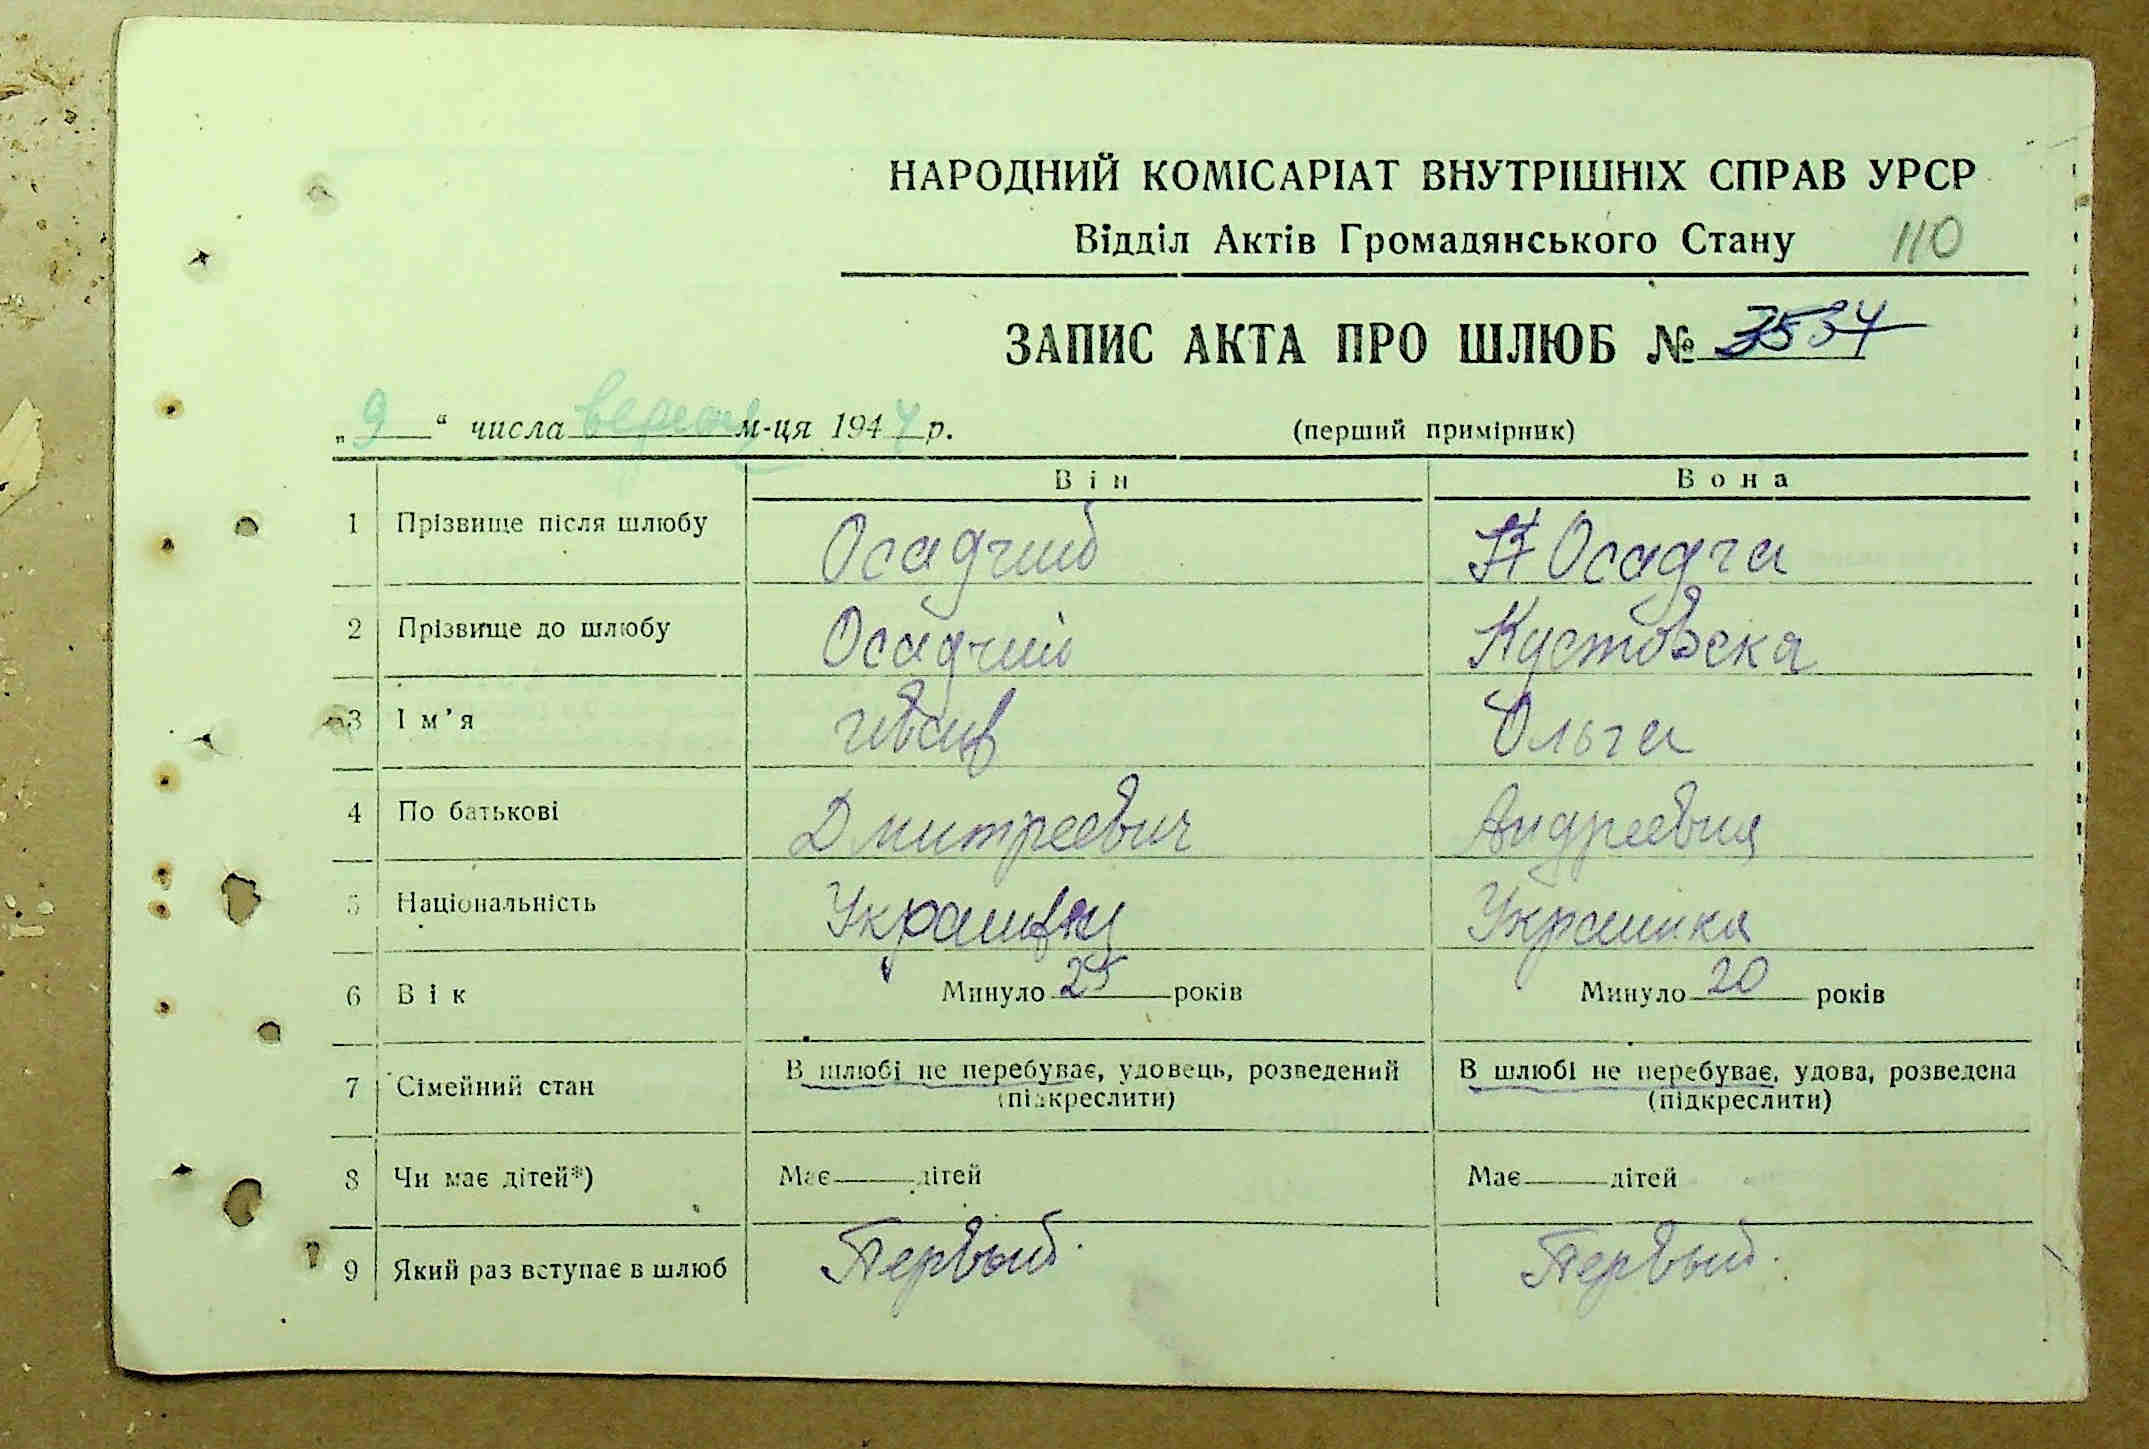 НАРОДНИЙ КОМІСАРІАТ ВНУТРІШНІХ СПРАВ УРСР
Відділ Актів Громадянського Стану 110
ЗАПИС АКТА ПРО ШЛЮБ № 3534
„ 9 “ числа вересня м-ця 1944 р. (перший примірник)
Він Вона
1 Прізвище після шлюбу Осадчий Осадча
2 Прізвище до шлюбу Осадчий Кустовска
3 Ім’я Ольга
4 По батькові Дмитреевич Андреевна
5 Національність Украинка
6 Вік Минуло 25 років Минуло 20 років
7 Сімейний стан В шлюбі не перебуває, удовець, розведений В шлюбі не перебуває, удова, розведена
(підкреслити) (підкреслити)
8 Чи має дітей*) Має дітей Має дітей
9 Який раз вступає в шлюб Первый. Первый.